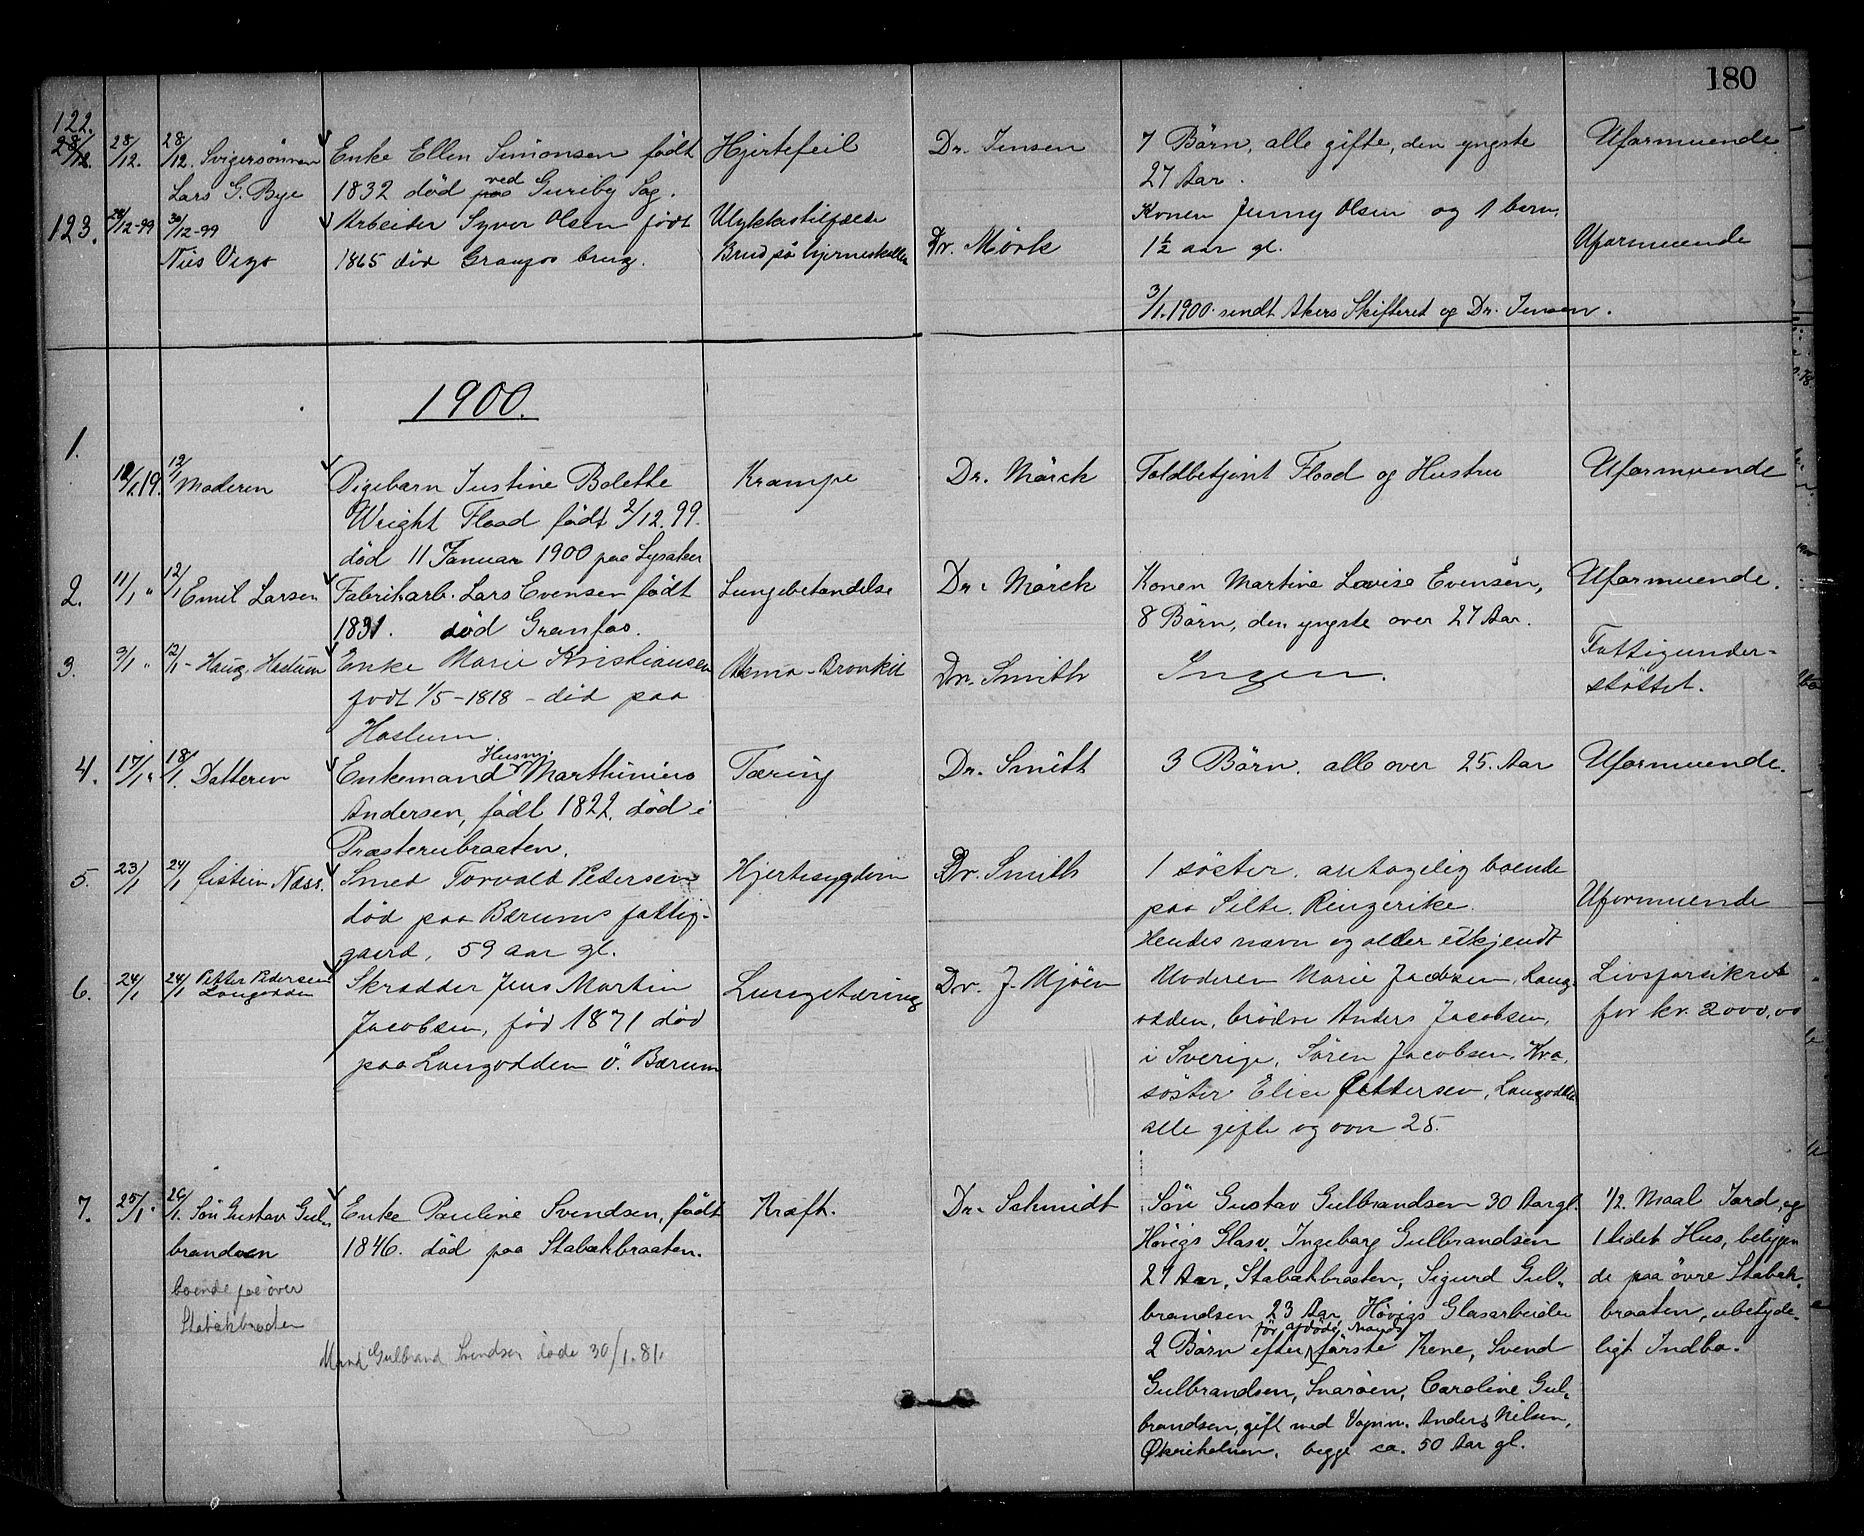 180
122.
28/12. 28/12. 28/12. Svigersönnen Enke Ellen Simonsen født Hjertefeil Dr. Jensen 7 Börn, alle gifte, den yngste Uformuende
Lars G. Bye 1832 död paa ved Guriby Sag. 27 Aar.
123. 28/12-99 30/12-99 Arbeider Syver Olsen født Ulykkestilfælde Konen Jenny Olsen og 1 barn
Nils Vego 1865 död Granfos brug. Brud på hjerneskallen Dr. Mörk 1½ aar gl. Uformuende
3/1.1900 sendt Akers Skifteret og Dr. Jensen.
1900.
1.
12/1.19. 12/1 Moderen Pigebarn Justine Bolette Krampe Dr. Mörck Toldbetjent Flood og Hustru Uformuende
Wright Flood født 2/12.99.
död 11 Januar 1900 paa Lysaker
2. 11/1 " 12/1 Emil Larsen Fabrikarb. Lars Evensen født Lungebetændelse Dr. Mörck Konen Martine Lovise Evensen, Uformuende.
1831. död Granfos. 8 Börn, den yngste over 27 Aar.
3. 9/1 " 12/1 - Haug. Haslum Enke Marie Kristiansen Astma - Bronkit Dr. Smith Ingen. Fattigunder-
født 1/5-1818 - död paa støttet.
Haslum.
4. 17/1 " 18/1. Datteren Enkemand Husm. Marthinius Tæring Dr. Smith 3 Börn. alle over 25. Aar Uformuende.
Andersen, født 1822, död i
Præsterubraaten.
5. 23/1 24/1 Eistein Næss. Smed Torvald Pedersen Hjertesygdom Dr. Smith 1 söster, antagelig boende
död paa Bærums fattig- paa Silte, Ringerike. Uformuende
gaard, 59 aar gl. Hendes navn og alder ukjendt
6. 24/1 24/1 Petter Pedersen Langodden Skrædder Jens Martin Lungetæring Dr. J. Mjöen Moderen Marie Jacobsen, Lang- Livsforsikret
Jacobsen, fød 1871 död odden, brödre Anders Jacobsen, for kr. 2000,00
paa Langodden Ö. Bærum i Sverige, Sören Jacobsen, Kra,
söster Elise Pettersen, Langodden
alle gifte og over 25.
7. 25/1. 26/1. Sön Gustav Gul- Enke Pauline Svendsen, født Kræft. Dr. Schmidt Sön Gustav Gulbrandsen 30 Aar gl. 1/2. Maal Jord, og
brandsen 1846. död paa Stabækbraaten. Hövigs Glasv. Ingeborg Gulbrandsen 1 lidet Hus, beliggen
boende paa över 27 Aar, Stabækbraaten, Sigurd Gul- de paa övre Stabæk-
Stabækbraaten brandsen 23 Aar, Hövigs Glasarbeider braaten, ubetyde-
Mand Gulbrand Svendsen döde 30/1.81. 2 Börn efter för afdöde Mands förste Kone, Svend ligt Indbo.
Gulbrandsen, Snaröen, Caroline Gul-
brandsen, gift med Vognm. Anders Nilsen,
begge ca. 50 Aar gl.